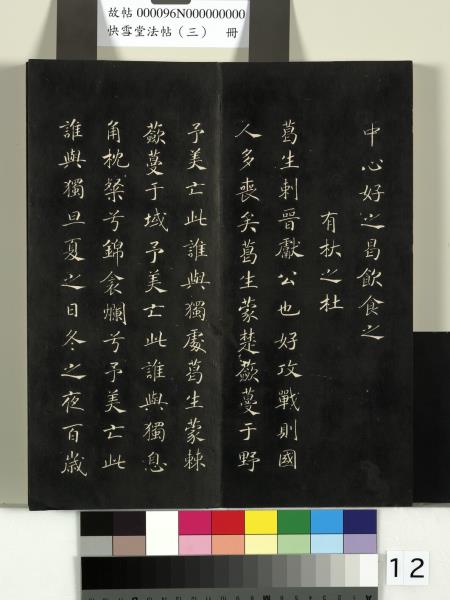 故帖 000096N000000000
快雪堂法帖（三） 冊
中心好之曷飲食之
有杕之杜
葛生刺晉獻公也好攻戰則國
人多喪矣葛生蒙楚蘞蔓于野
予美亡此誰與獨處葛生蒙棘
蘞蔓于域予美亡此誰與獨息
角枕粲兮錦衾爛兮予美亡此
誰與獨旦夏之日冬之夜百歲
12